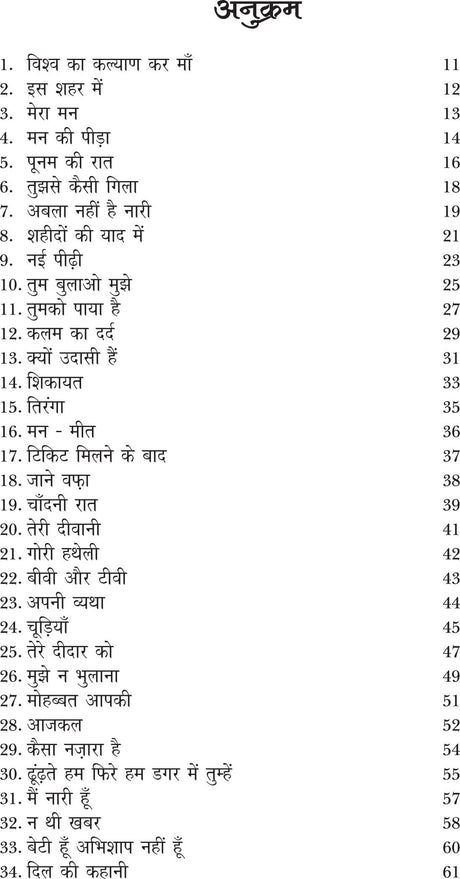 अनुक्रम
1. विश्व का कल्याण कर माँ 11
2. इस शहर में 12
3. मेरा मन 13
4. मन की पीड़ा 14
5. पूनम की रात 16
6. तुझसे कैसी गिला 18
7. अबला नहीं है नारी 19
8. शहीदों की याद में 21
9. नई पीढ़ी 23
10. तुम बुलाओ मुझे 25
11. तुमको पाया है 27
12. कलम का दर्द 29
13. क्यों उदासी हैं 31
14. शिकायत 33
15. तिरंगा 35
16. मन - मीत 36
17. टिकिट मिलने के बाद 37
18. जाने वफ़ा 38
19. चाँदनी रात 39
20. तेरी दीवानी 41
21. गोरी हथेली 42
22. बीवी और टीवी 43
23. अपनी व्यथा 44
24. चूड़ियाँ 45
25. तेरे दीदार को 47
26. मुझे न भुलाना 49
27. मोहब्बत आपकी 51
28. आजकल 52
29. कैसा नज़ारा है 54
30. ढूंढ़ते हम फिरे हम डगर में तुम्हें 55
31. मैं नारी हूँ 57
32. न थी खबर 58
33. बेटी हूँ अभिशाप नहीं हूँ 60
34. दिल की कहानी 61